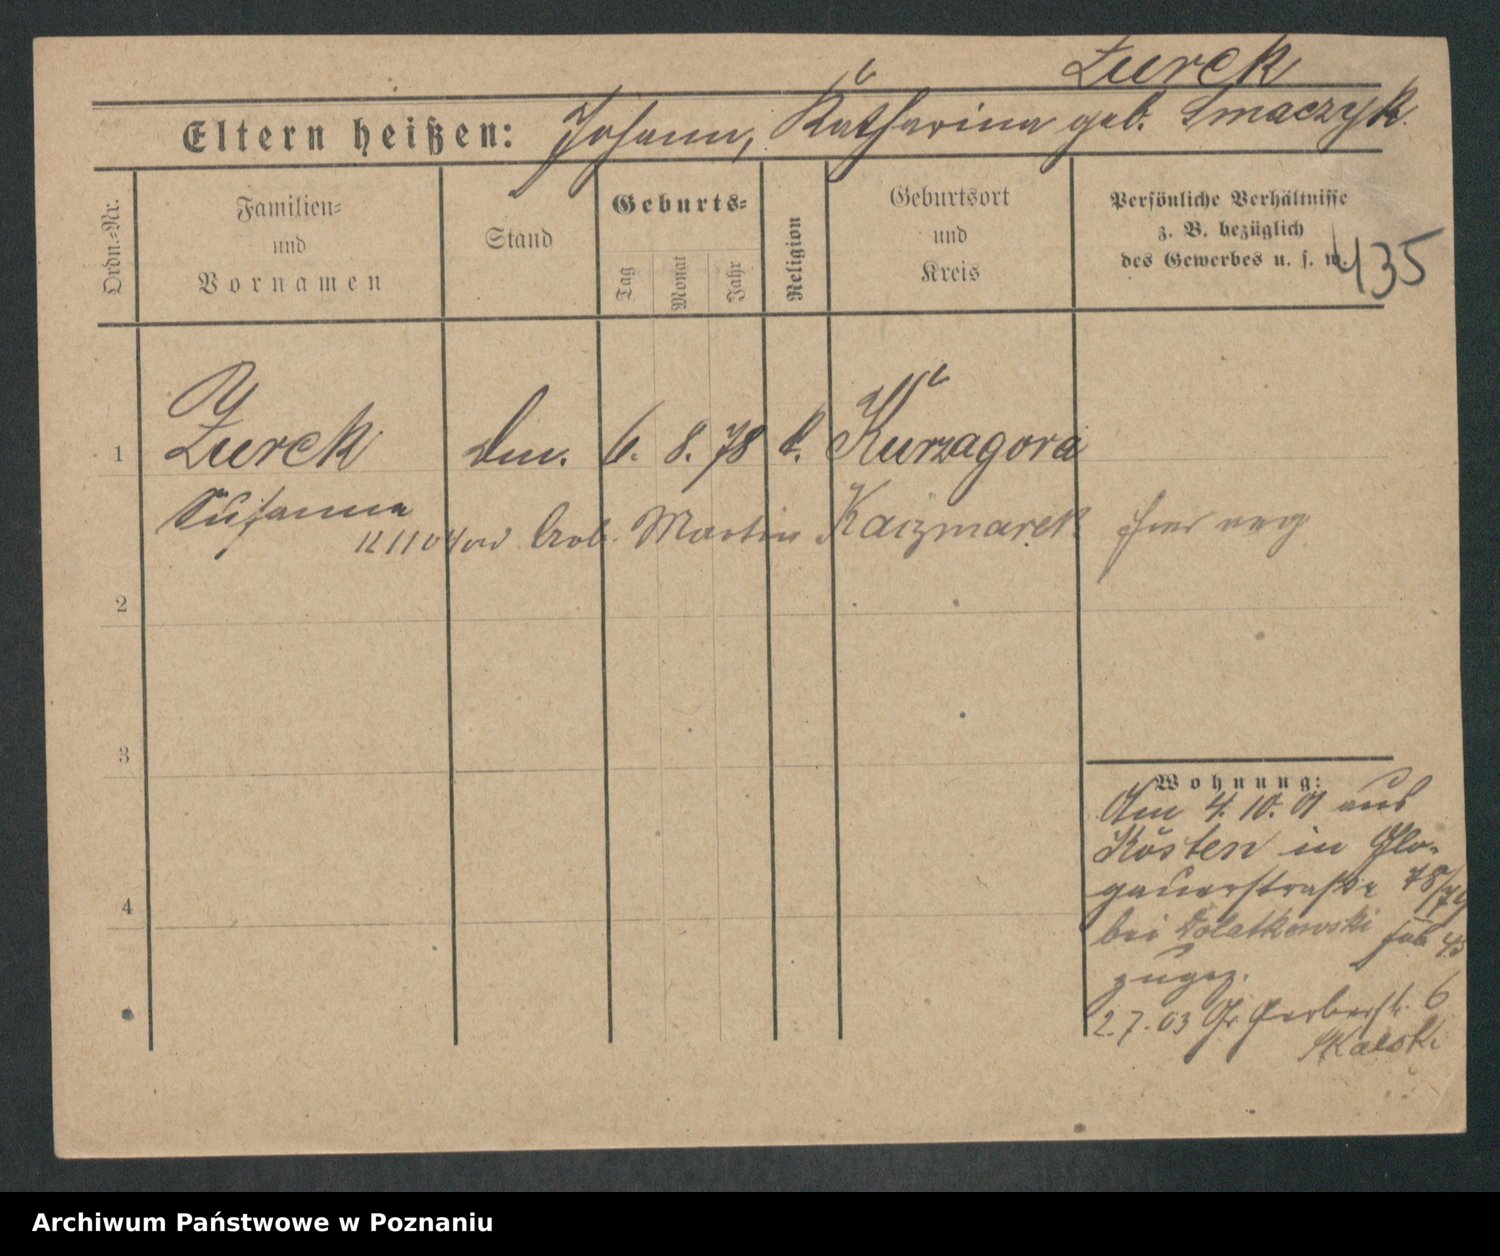 Zurek
Eltern heißen: Johann, Katharina geb. Smaczyk
Ordn.-Nr.
Familien-
und
Vornamen
Stand
Geburts-
Tag
Monat
Jahr
Religion
Geburtsort
und
Kreis
Persönliche Verhältnisse
z. B. bezüglich
des Gewerbes u. s. w.
435
1
Zurek
6. 8. 78 k. Kurzagora
Susanna
Arb. Martin Kaczmarek
2
3
4
Wohnung:
Am 4. 10. 01 aus
Kosten in Glo-
gauerstraße 78/79
bei Dolatkowski
zugez.
2. 7. 03 Gr Gerberstr. 6
Skalski
Archiwum Państwowe w Poznaniu